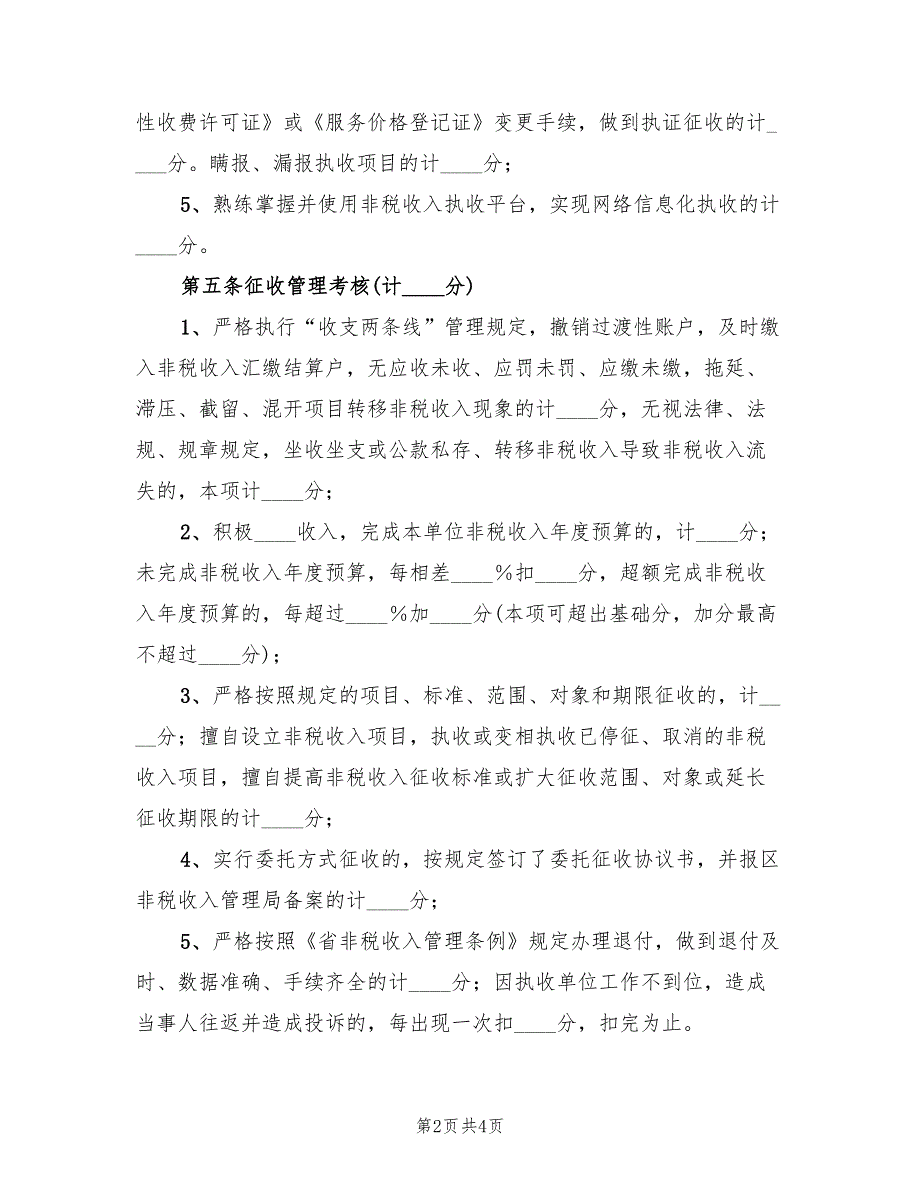 性收费许可证》或《服务价格登记证》变更手续，做到执证征收的计_
___分。瞒报、漏报执收项目的计____分；
5、熟练掌握并使用非税收入执收平台，实现网络信息化执收的计
____分。
第五条征收管理考核(计____分)
1、严格执行“收支两条线”管理规定，撤销过渡性账户，及时缴
入非税收入汇缴结算户，无应收未收、应罚未罚、应缴未缴，拖延、
滞压、截留、混开项目转移非税收入现象的计____分，无视法律、法
规、规章规定，坐收坐支或公款私存、转移非税收入导致非税收入流
失的，本项计____分；
2、积极____收入，完成本单位非税收入年度预算的，计____分；
未完成非税收入年度预算，每相差____%扣____分，超额完成非税收
入年度预算的，每超过____%加____分(本项可超出基础分，加分最高
不超过____分)；
3、严格按照规定的项目、标准、范围、对象和期限征收的，计__
__分；擅自设立非税收入项目，执收或变相执收已停征、取消的非税
收入项目，擅自提高非税收入征收标准或扩大征收范围、对象或延长
征收期限的计____分；
4、实行委托方式征收的，按规定签订了委托征收协议书，并报区
非税收入管理局备案的计____分；
5、严格按照《省非税收入管理条例》规定办理退付，做到退付及
时、数据准确、手续齐全的计____分；因执收单位工作不到位，造成
当事人往返并造成投诉的，每出现一次扣____分，扣完为止。
第2页共4页